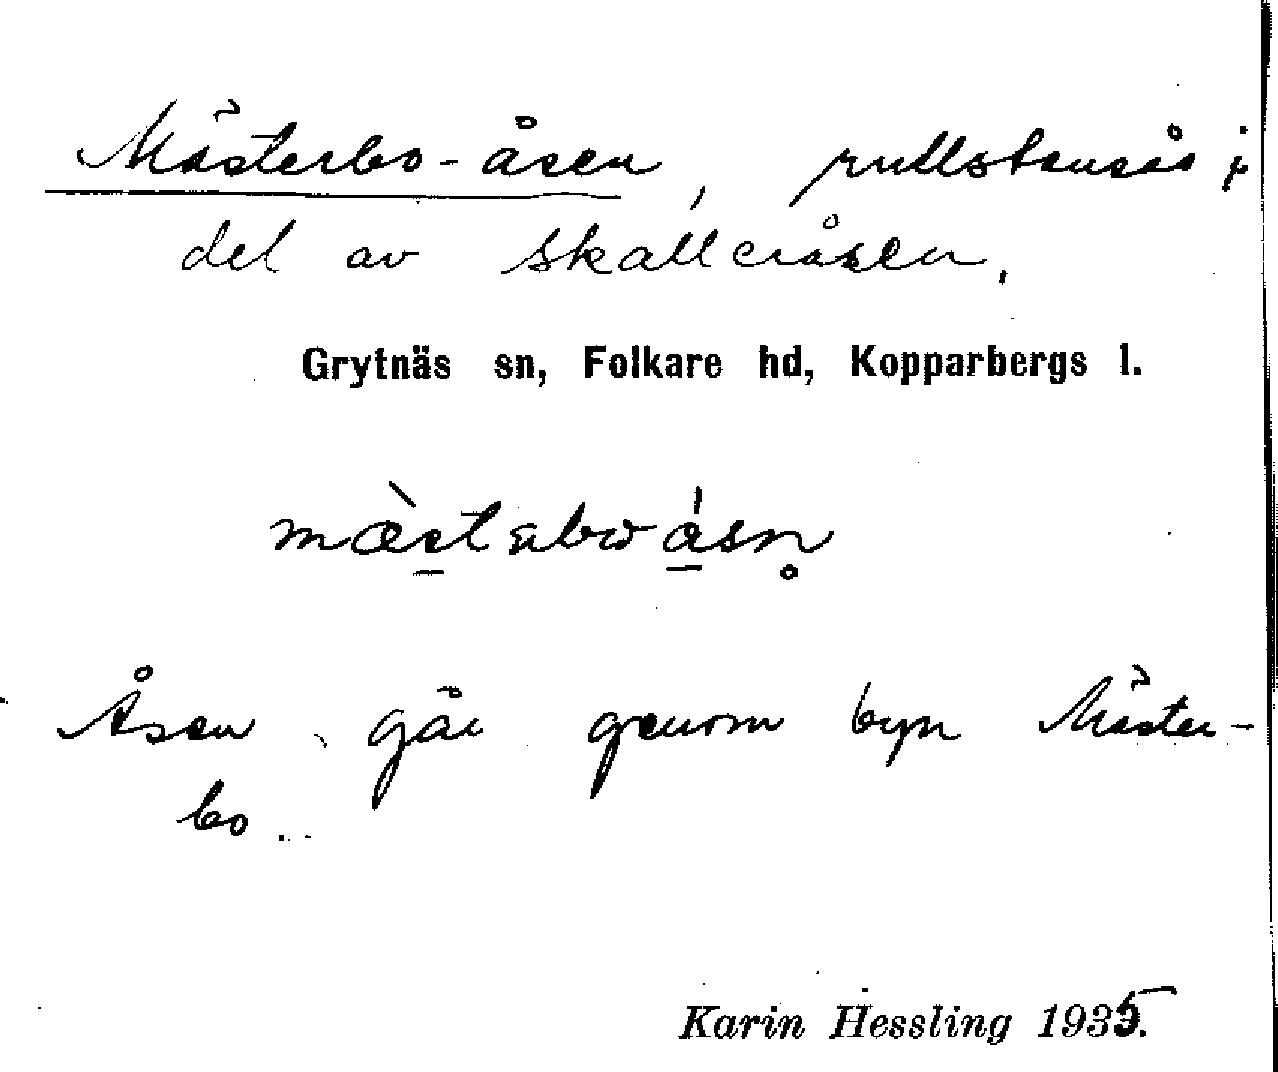 Mästerbo-åsen, rullstensås;
del av Skalleråsen.
Grytnäs sn, Folkare hd, Kopparbergs l.
Åsen går genom byn Mäster-
bo.
Karin Hessling 1935.